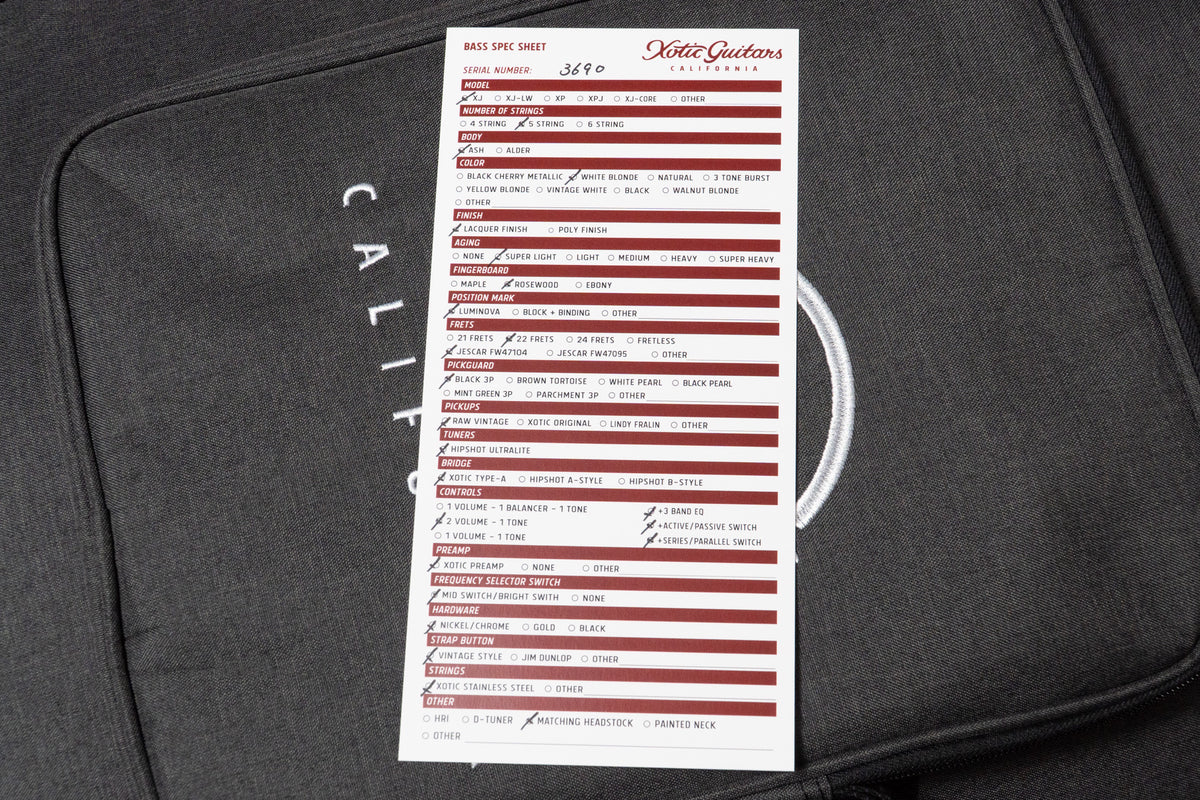 BASS SPEC SHEET
Xotic Guitars
CALIFORNIA
SERIAL NUMBER: 3690
MODEL
XJ XJ-LW XP XPJ XJ-CORE OTHER
NUMBER OF STRINGS
4 STRING 5 STRING 6 STRING
BODY
ASH ALDER
COLOR
BLACK CHERRY METALLIC WHITE BLONDE NATURAL 3 TONE BURST
YELLOW BLONDE VINTAGE WHITE BLACK WALNUT BLONDE
OTHER
FINISH
LACQUER FINISH POLY FINISH
AGING
NONE SUPER LIGHT LIGHT MEDIUM HEAVY SUPER HEAVY
FINGERBOARD
MAPLE ROSEWOOD EBONY
POSITION MARK
LUMINOVA BLOCK + BINDING OTHER
FRETS
21 FRETS 22 FRETS 24 FRETS FRETLESS
JESCAR FW47104 JESCAR FW47095 OTHER
PICKGUARD
BLACK 3P BROWN TORTOISE WHITE PEARL BLACK PEARL
MINT GREEN 3P PARCHMENT 3P OTHER
PICKUPS
RAW VINTAGE XOTIC ORIGINAL LINDY FRALIN OTHER
TUNERS
HIPSHOT ULTRALITE
BRIDGE
XOTIC TYPE-A HIPSHOT A-STYLE HIPSHOT B-STYLE
CONTROLS
1 VOLUME - 1 BALANCER - 1 TONE +3 BAND EQ
2 VOLUME - 1 TONE +ACTIVE/PASSIVE SWITCH
1 VOLUME - 1 TONE +SERIES/PARALLEL SWITCH
PREAMP
XOTIC PREAMP NONE OTHER
FREQUENCY SELECTOR SWITCH
MID SWITCH/BRIGHT SWITH NONE
HARDWARE
NICKEL/CHROME GOLD BLACK
STRAP BUTTON
VINTAGE STYLE JIM DUNLOP OTHER
STRINGS
XOTIC STAINLESS STEEL OTHER
OTHER
HRI D-TUNER MATCHING HEADSTOCK PAINTED NECK
OTHER
CALIF